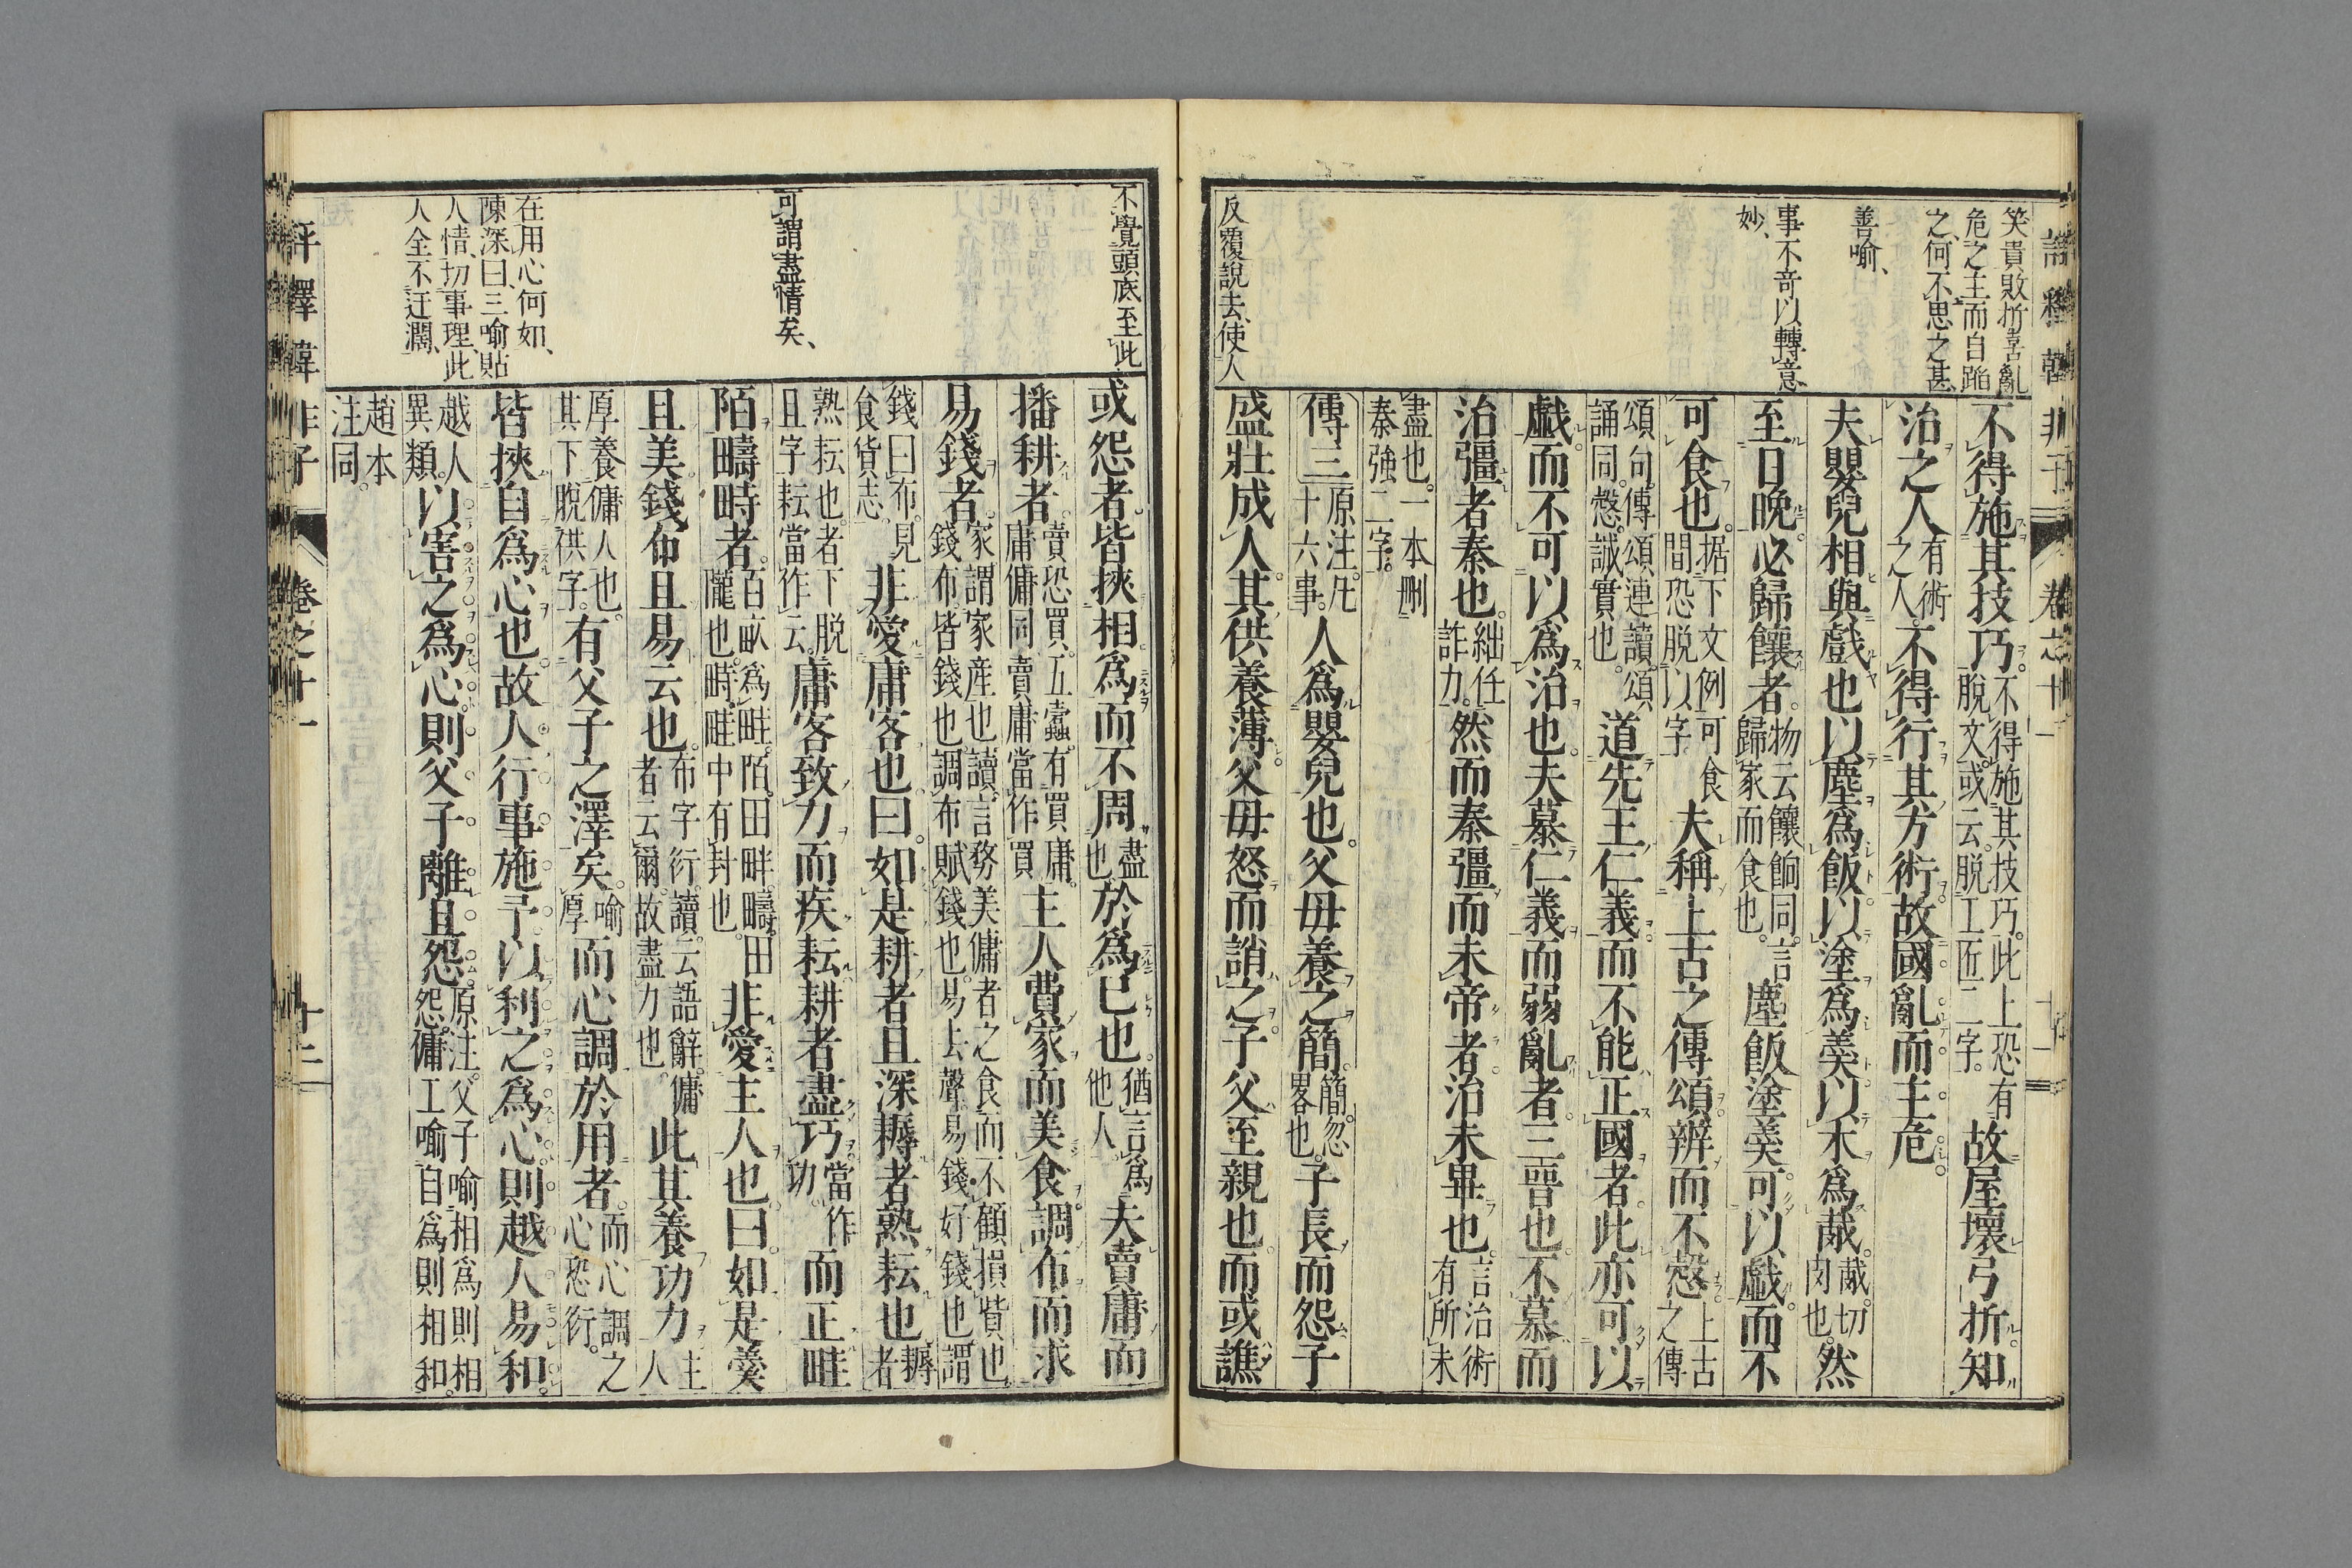 笑貴敗折喜亂
危之主而自蹈
之何不思之甚
善喻
事不竒以轉意
妙
反覆說去使人
不得施其技巧不得施其技巧此上恐有脫文或云脫工匠二字故屋壞弓折知
治之人有術之人不得行其方術故國亂而主危
夫嬰兒相與戲也以塵爲飯以塗爲羹以木爲胾胾切肉也然
至日晚必歸饟者物云饟餉同言歸家而食也塵飯塗羹可以戲而不
可食也据下文例可食間恐脫以字夫稱上古之傳頌辨而不愨上古之傳
頌句傳頌連讀頌誦同愨誠實也道先王仁義而不能正國者此亦可以
戲而不可以爲治也夫慕仁義而弱亂者三晉也不慕而
治彊者秦也絀任詐力然而秦彊而未帝者治未畢也言治術有所未
盡也一本刪秦強二字
傳三原注凡十六事人爲嬰兒也父母養之簡簡忽畧也子長而怨子
盛壯成人其供養薄父母怒而誚之子父至親也而或譙
評釋韓非子 卷之十一
不覺頭底至此
可謂盡情矣
在用心何如
陳深曰三喻貼
人情切事理此
人全不迂濶
或怨者皆挾相爲而不周盡也於爲已也猶言爲他人夫賣庸而
播耕者賣恐買五蠹有買庸庸傭同賣庸當作買主人費家而美食調布而求
易錢者家謂家産也讀言務美傭者之食而不顧損貲也錢布皆錢也調布賦錢也易去聲易錢好錢也謂
錢曰布見食貨志非愛庸客也曰如是耕者且深耨者熟耘也耨者
熟耘也者下脫且字耘當作云庸客致力而疾耘耕者盡巧當作功而正畦
陌疇時者百畝爲畦陌田畔疇田隴也時畦中有封也非愛主人也曰如是羹
且美錢布且易云也布字衍讀云語辭傭者云爾故盡力也此其養功力主人
厚養傭人也其下脫供字有父子之澤矣喻厚而心調於用者而心調之心恐衍
皆挾自爲心也故人行事施予以利之爲心則越人易和
越人異類以害之爲心則父子離且怨原注父子喻相爲則相怨傭工喻自爲則相和
趙本注同
評釋韓非子 卷之十一 十二